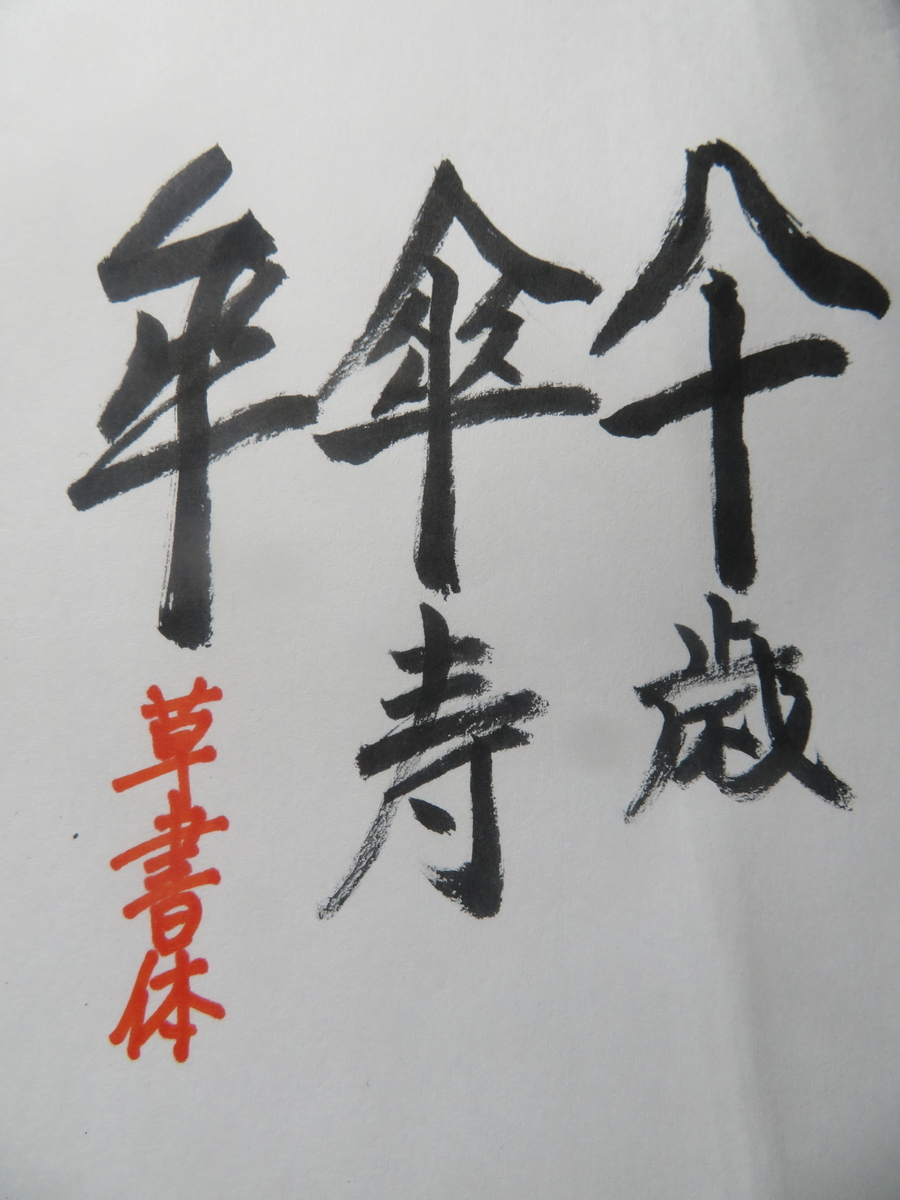 仐歳
傘寿
傘
草書体